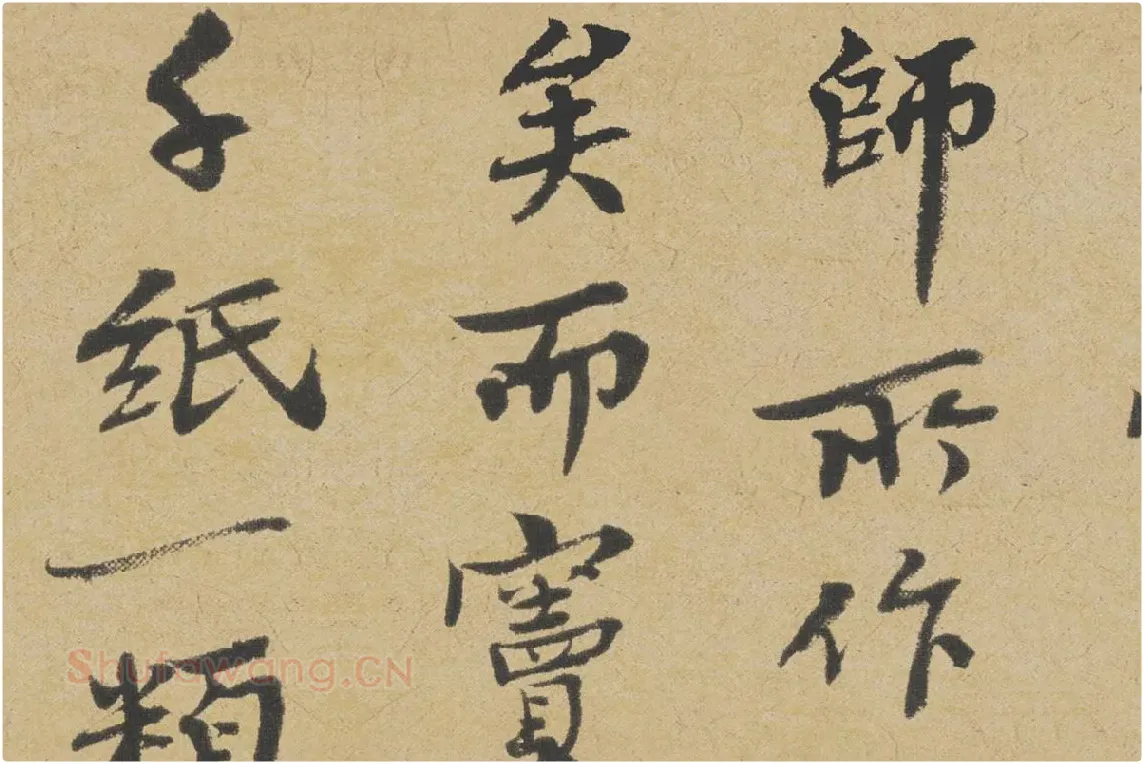 師所作
矣而竇
千紙一類
Shufawang.CN